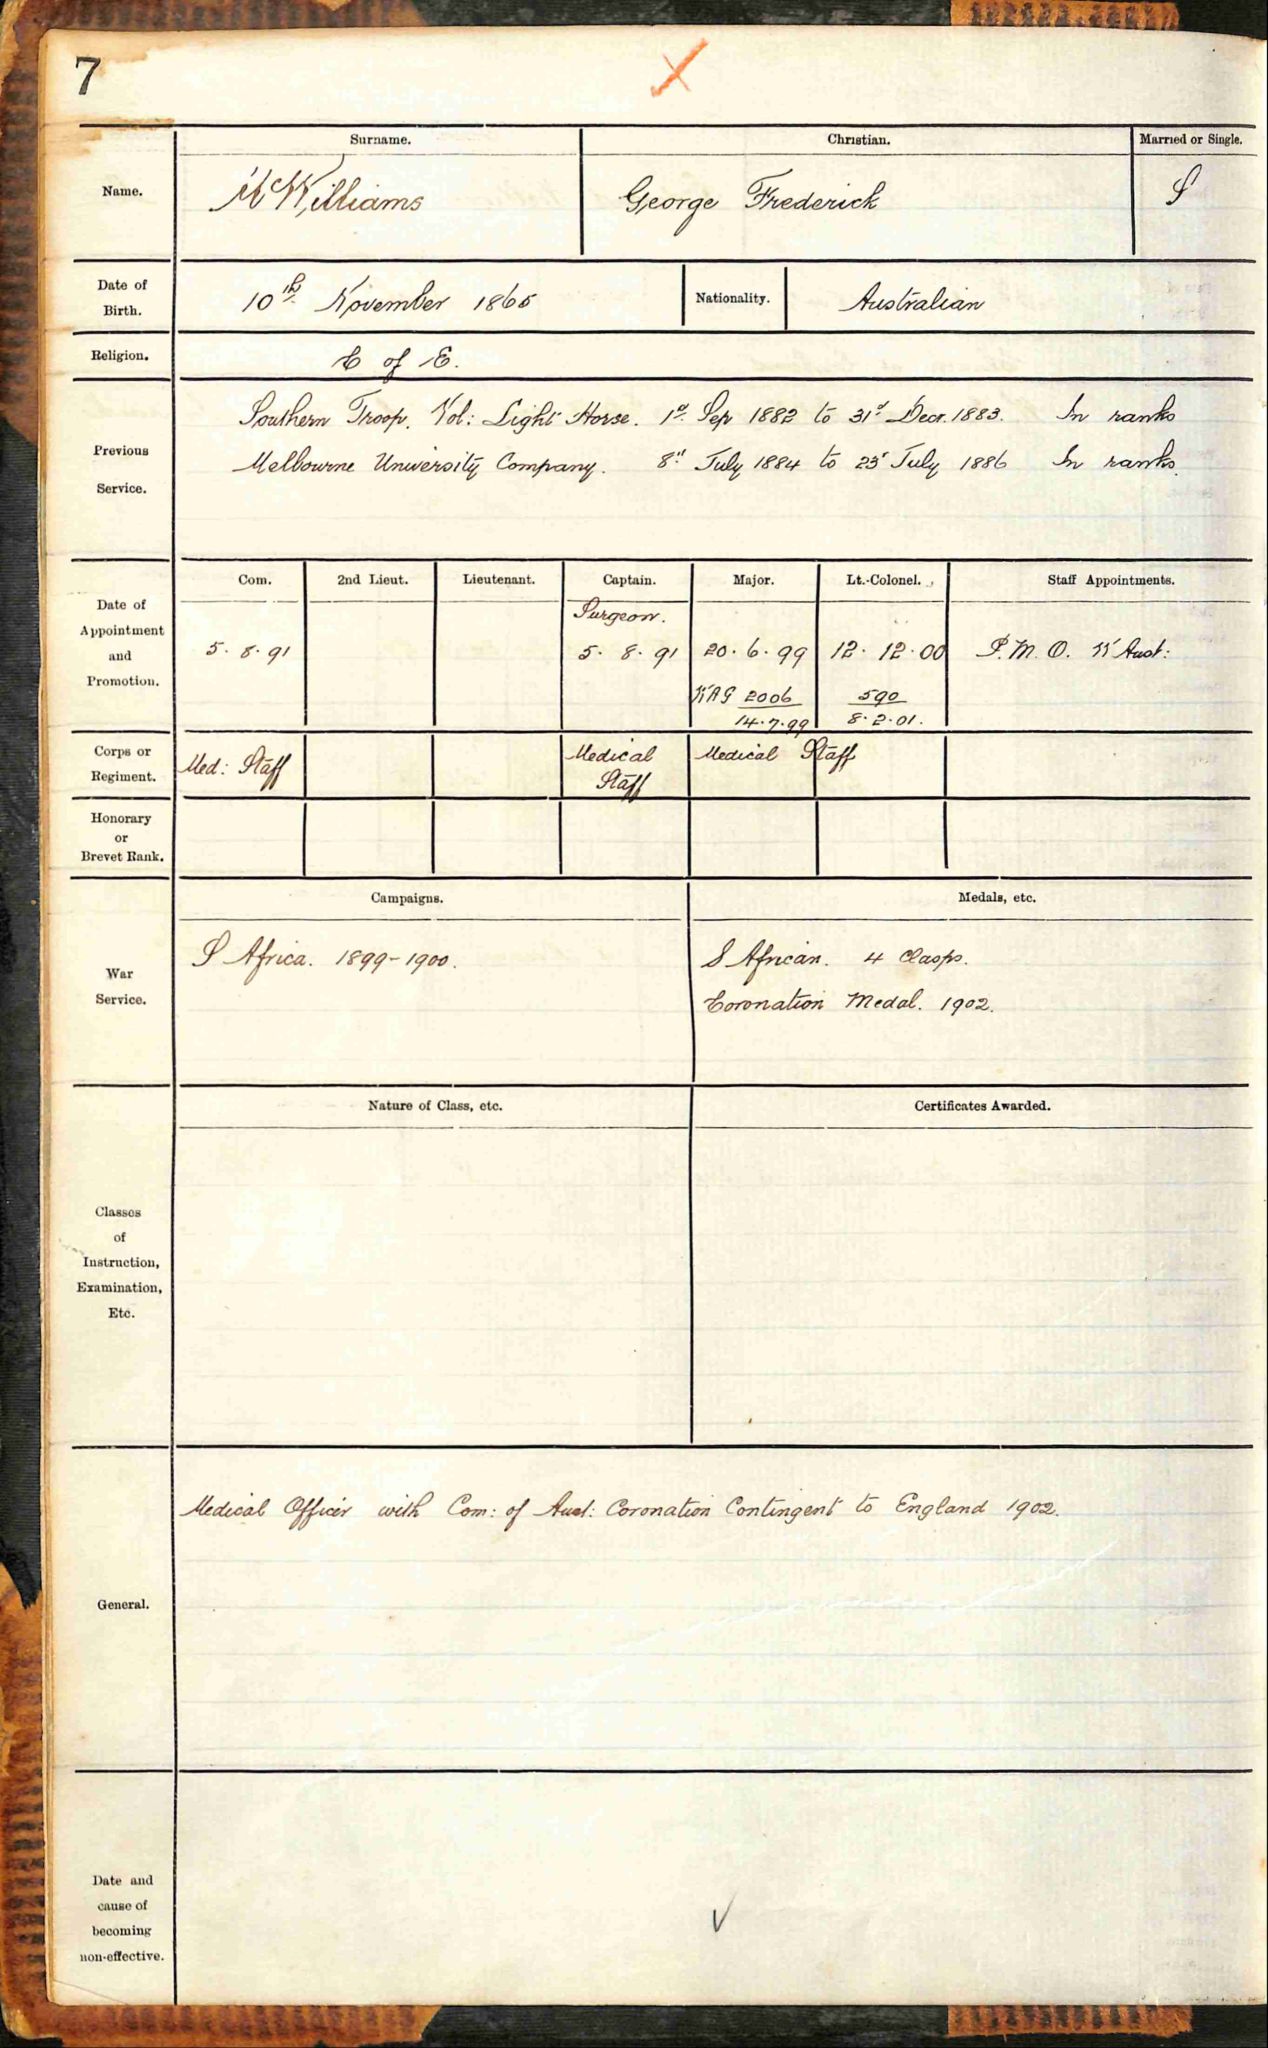 7
Surname. Christian. Married or Single.
Name. McWilliams George Frederick S
Date of Birth. 10th November 1865 Nationality. Australian
Religion. C of E.
Previous Service.
Southern Troop. Vol: Light Horse. 1st Sep 1882 to 31st Decr. 1883. In ranks
Melbourne University Company. 8th July 1884 to 23rd July 1886 In ranks.
Com. 2nd Lieut. Lieutenant. Captain. Major. Lt.-Colonel. Staff Appointments.
Date of Appointment and Promotion.
Surgeon.
5.8.91 5.8.91 20.6.99 12.12.00 P.M.O. W Aust:
2006 590
14.7.99 8.2.01.
Corps or Regiment. Med: Staff Medical Staff Medical Staff
Honorary or Brevet Rank.
Campaigns. Medals, etc.
War Service.
S Africa. 1899-1900. S African. 4 Clasps.
Coronation Medal. 1902.
Nature of Class, etc. Certificates Awarded.
Classes of Instruction, Examination, Etc.
General.
Medical Officer with Com: of Aust: Coronation Contingent to England 1902.
Date and cause of becoming non-effective.